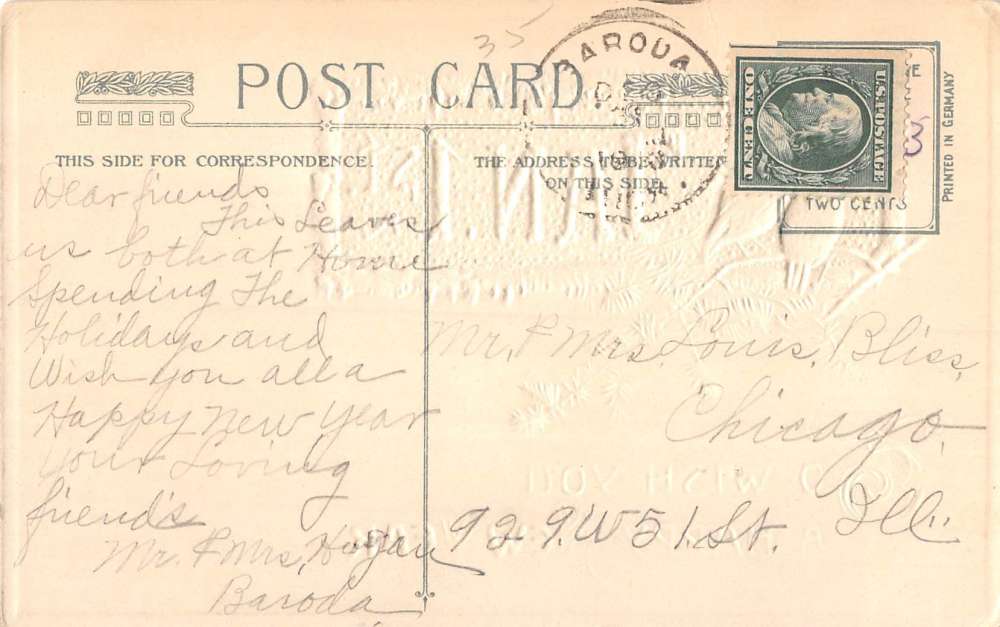 35
POST CARD
BARODA
THIS SIDE FOR CORRESPONDENCE.
THE ADDRESS TO BE WRITTEN
ON THIS SIDE
U.S. POSTAGE
ONE CENT
TWO CENTS
PRINTED IN GERMANY
3
Dear friends
This Leaves
us both at Home
Spending The
Holidays and
Wish you all a
Happy New Year
Your Loving
friends
Mr. & Mrs. Hogan
Baroda
Mr. & Mrs. Louis. Bliss.
Chicago,
Ill.
929. W 51. St.
JAN. 1ST
TO WISH YOU